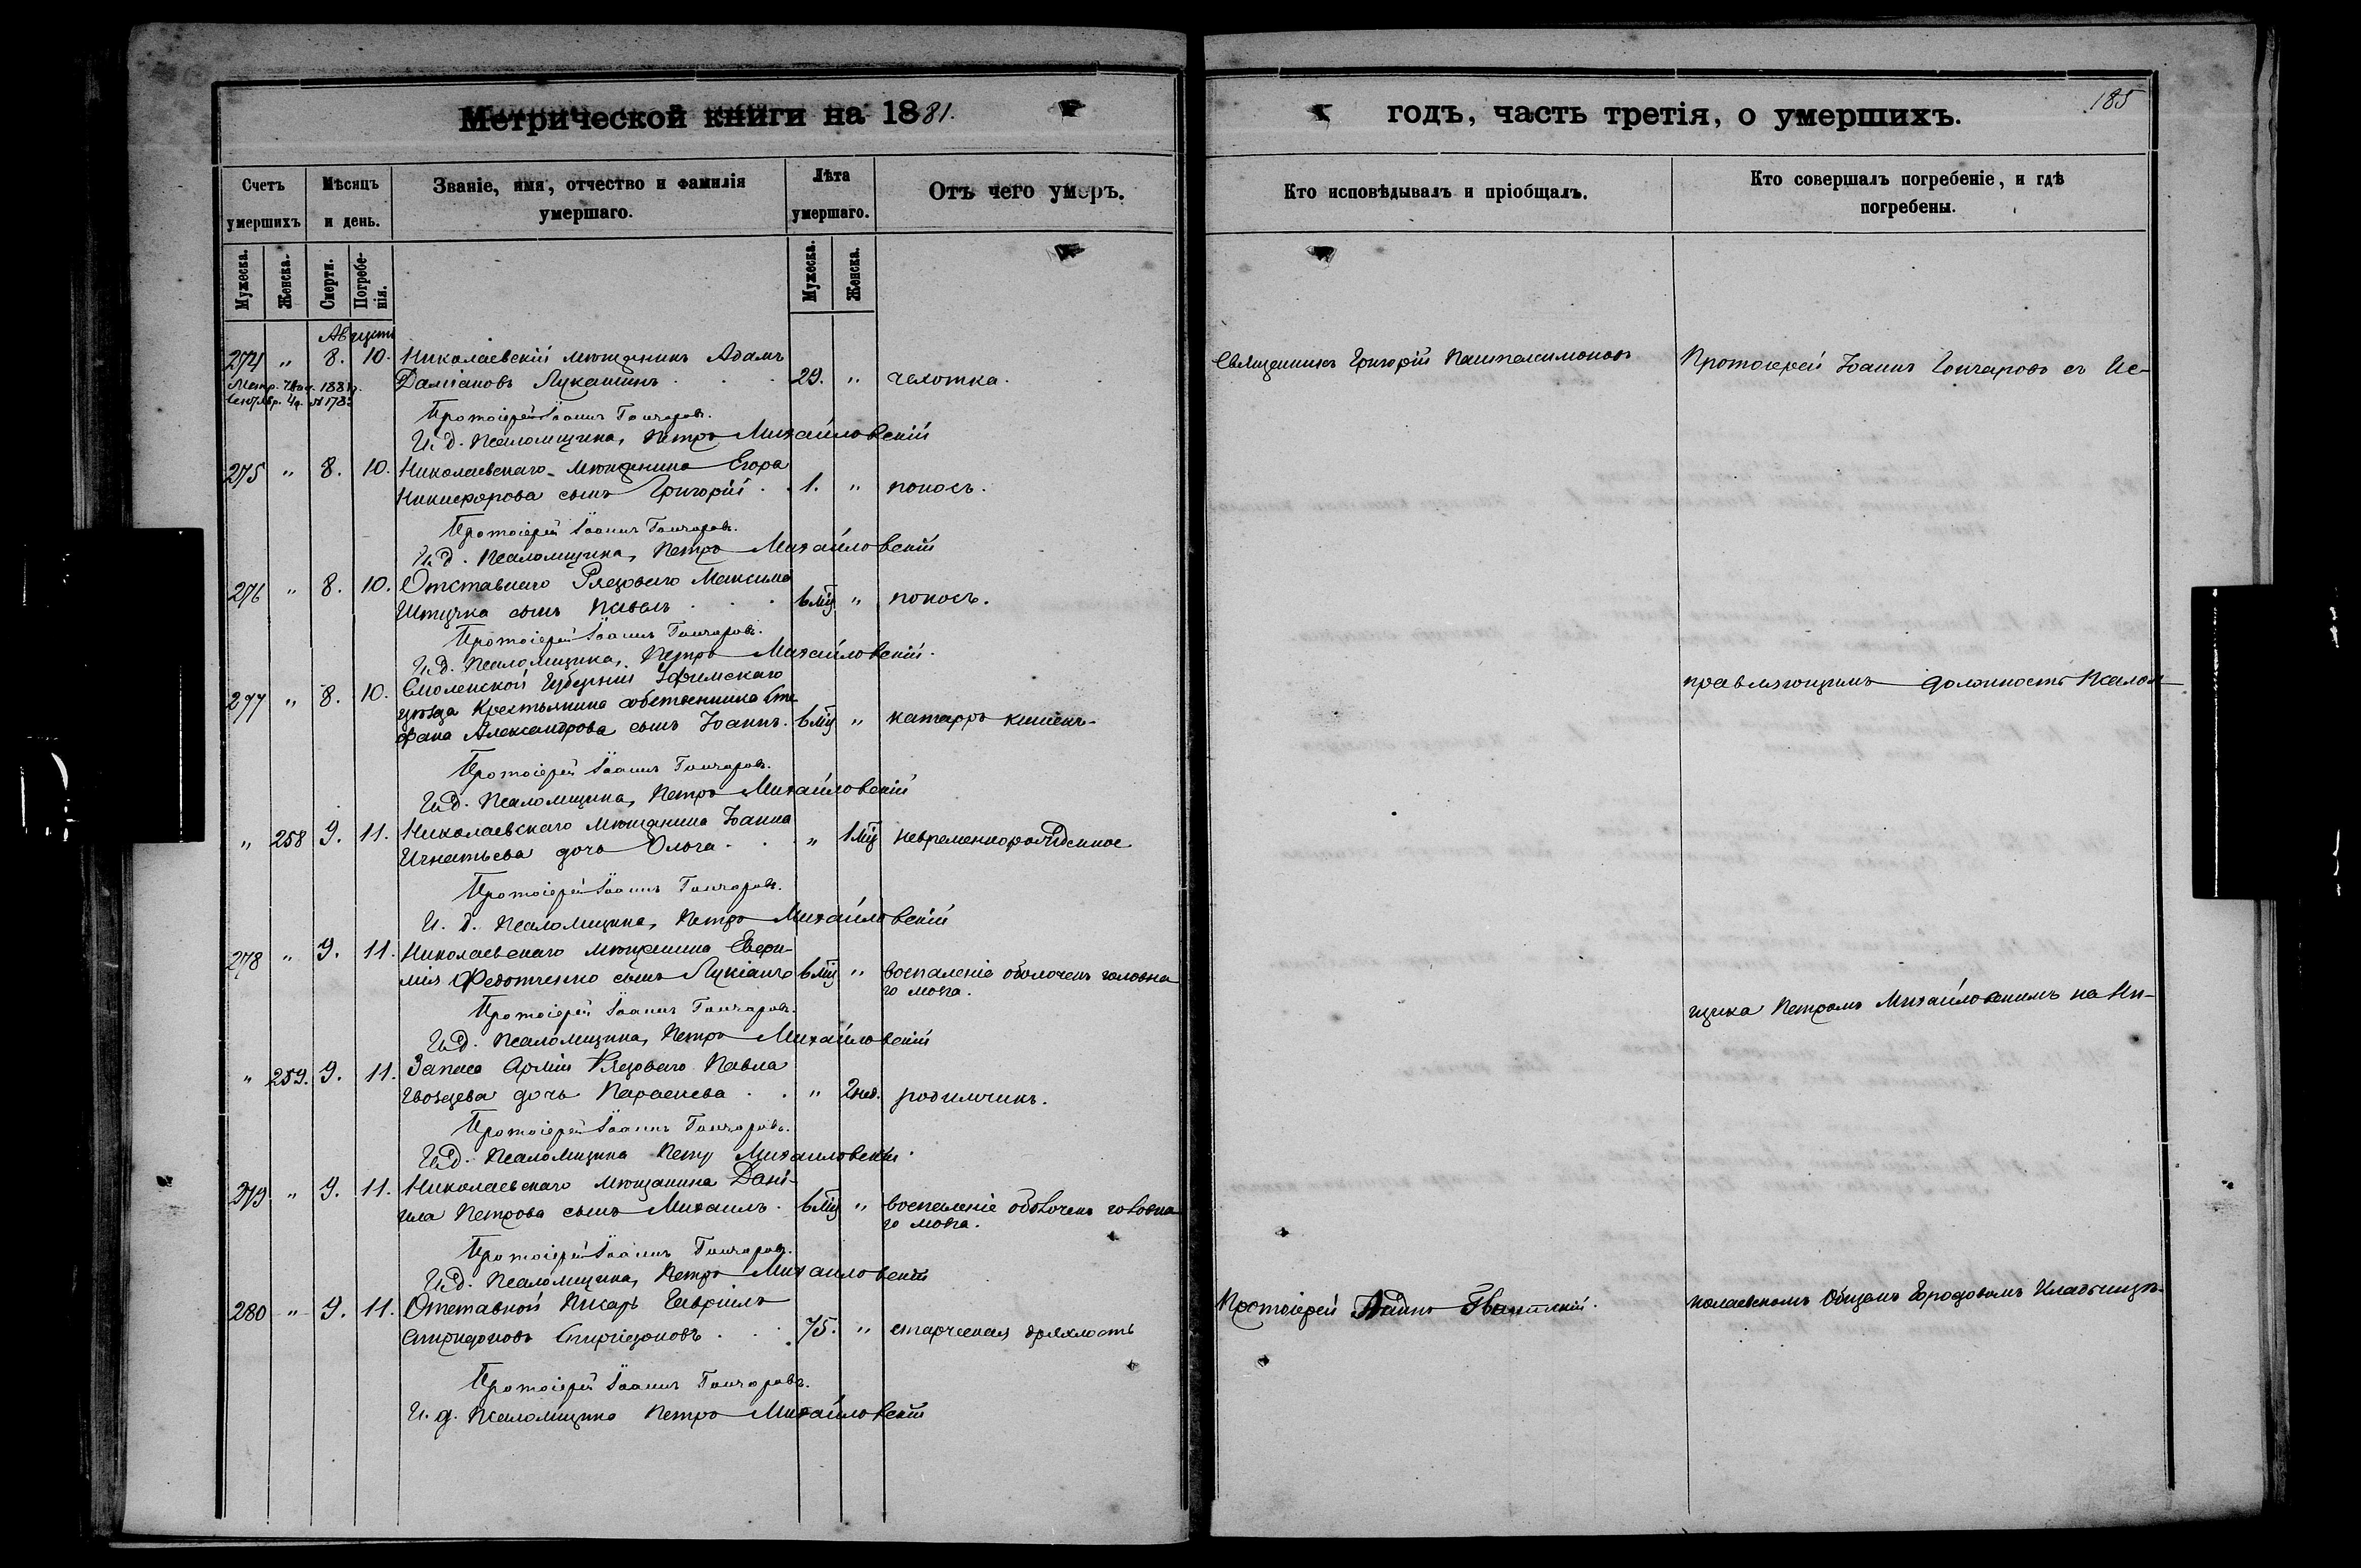 Метрической книги на 1881.
годъ, часть третія, о умершихъ.
185
Счетъ умершихъ
Мѣсяцъ и день.
Званіе, имя, отчество и фамилія умершаго.
Лѣта умершаго.
Отъ чего умеръ.
Кто исповѣдывалъ и пріобщалъ.
Кто совершалъ погребеніе, и гдѣ погребены.
Мужеска. Женска. Смерти. Погребенія. Мужеска. Женска.
Августъ
274 " 8. 10. Николаевскій мѣщанинъ Адамъ
Даміановъ Лукашинъ 29. " чахотка.
Священникъ Григорій Пантелеимоновъ
Протоіерей Іоаннъ Гончаровъ съ Ис-
Протоіерей Іоаннъ Гончаровъ.
И. д. Псаломщика, Петръ Михайловскій
275 " 8. 10. Николаевскаго мѣщанина Егора
Никифорова сынъ Григорій 1. " поносъ.
Протоіерей Іоаннъ Гончаровъ.
И. д. Псаломщика, Петръ Михайловскій
276 " 8. 10. Отставнаго Рядоваго Максима
сынъ Павелъ 6 мц " поносъ.
Протоіерей Іоаннъ Гончаровъ.
И. д. Псаломщика, Петръ Михайловскій.
277 " 8. 10. Смоленской Губерніи
уѣзда Крестьянина собственника Сте
фана Александрова сынъ Іоаннъ. 6 мц " катарръ кишекъ-
правляющимъ должность Псалом
Протоіерей Іоаннъ Гончаровъ.
И. д. Псаломщика, Петръ Михайловскій
" 258 9. 11. Николаевскаго мѣщанина Іоанна
Игнатьева дочь Ольга " 1 мц невременнорожденное
Протоіерей Іоаннъ Гончаровъ.
И. д. Псаломщика, Петръ Михайловскій
278 " 9. 11. Николаевскаго мѣщанина Евфи-
мія Федотченко сынъ Лукіанъ 6 мц " воспаленіе оболочекъ головна
го мозга.
Протоіерей Іоаннъ Гончаровъ.
И. д. Псаломщика, Петръ Михайловскій
щика Петромъ Михайловскимъ на Ни-
" 259. 9. 11. Запаса Арміи Рядоваго Павла
Гвоздева дочь Параскева " 2 нед. родимчикъ.
Протоіерей Іоаннъ Гончаровъ.
И. д. Псаломщика Петръ Михайловскій.
279 " 9. 11. Николаевскаго мѣщанина Дані-
ила Петрова сынъ Михаилъ. 6 мц " воспаленіе оболочекъ головна
го мозга.
Протоіерей Іоаннъ Гончаровъ.
И. д. Псаломщика, Петръ Михайловскій
280 " 9. 11. Отставной Писарь Гавріилъ
Спиридоновъ Спиридоновъ 75. " старческая дряхлость
Протоіерей
колаевскомъ Общемъ Городовомъ Кладбищѣ.
Протоіерей Іоаннъ Гончаровъ.
И. д. Псаломщика Петръ Михайловскій